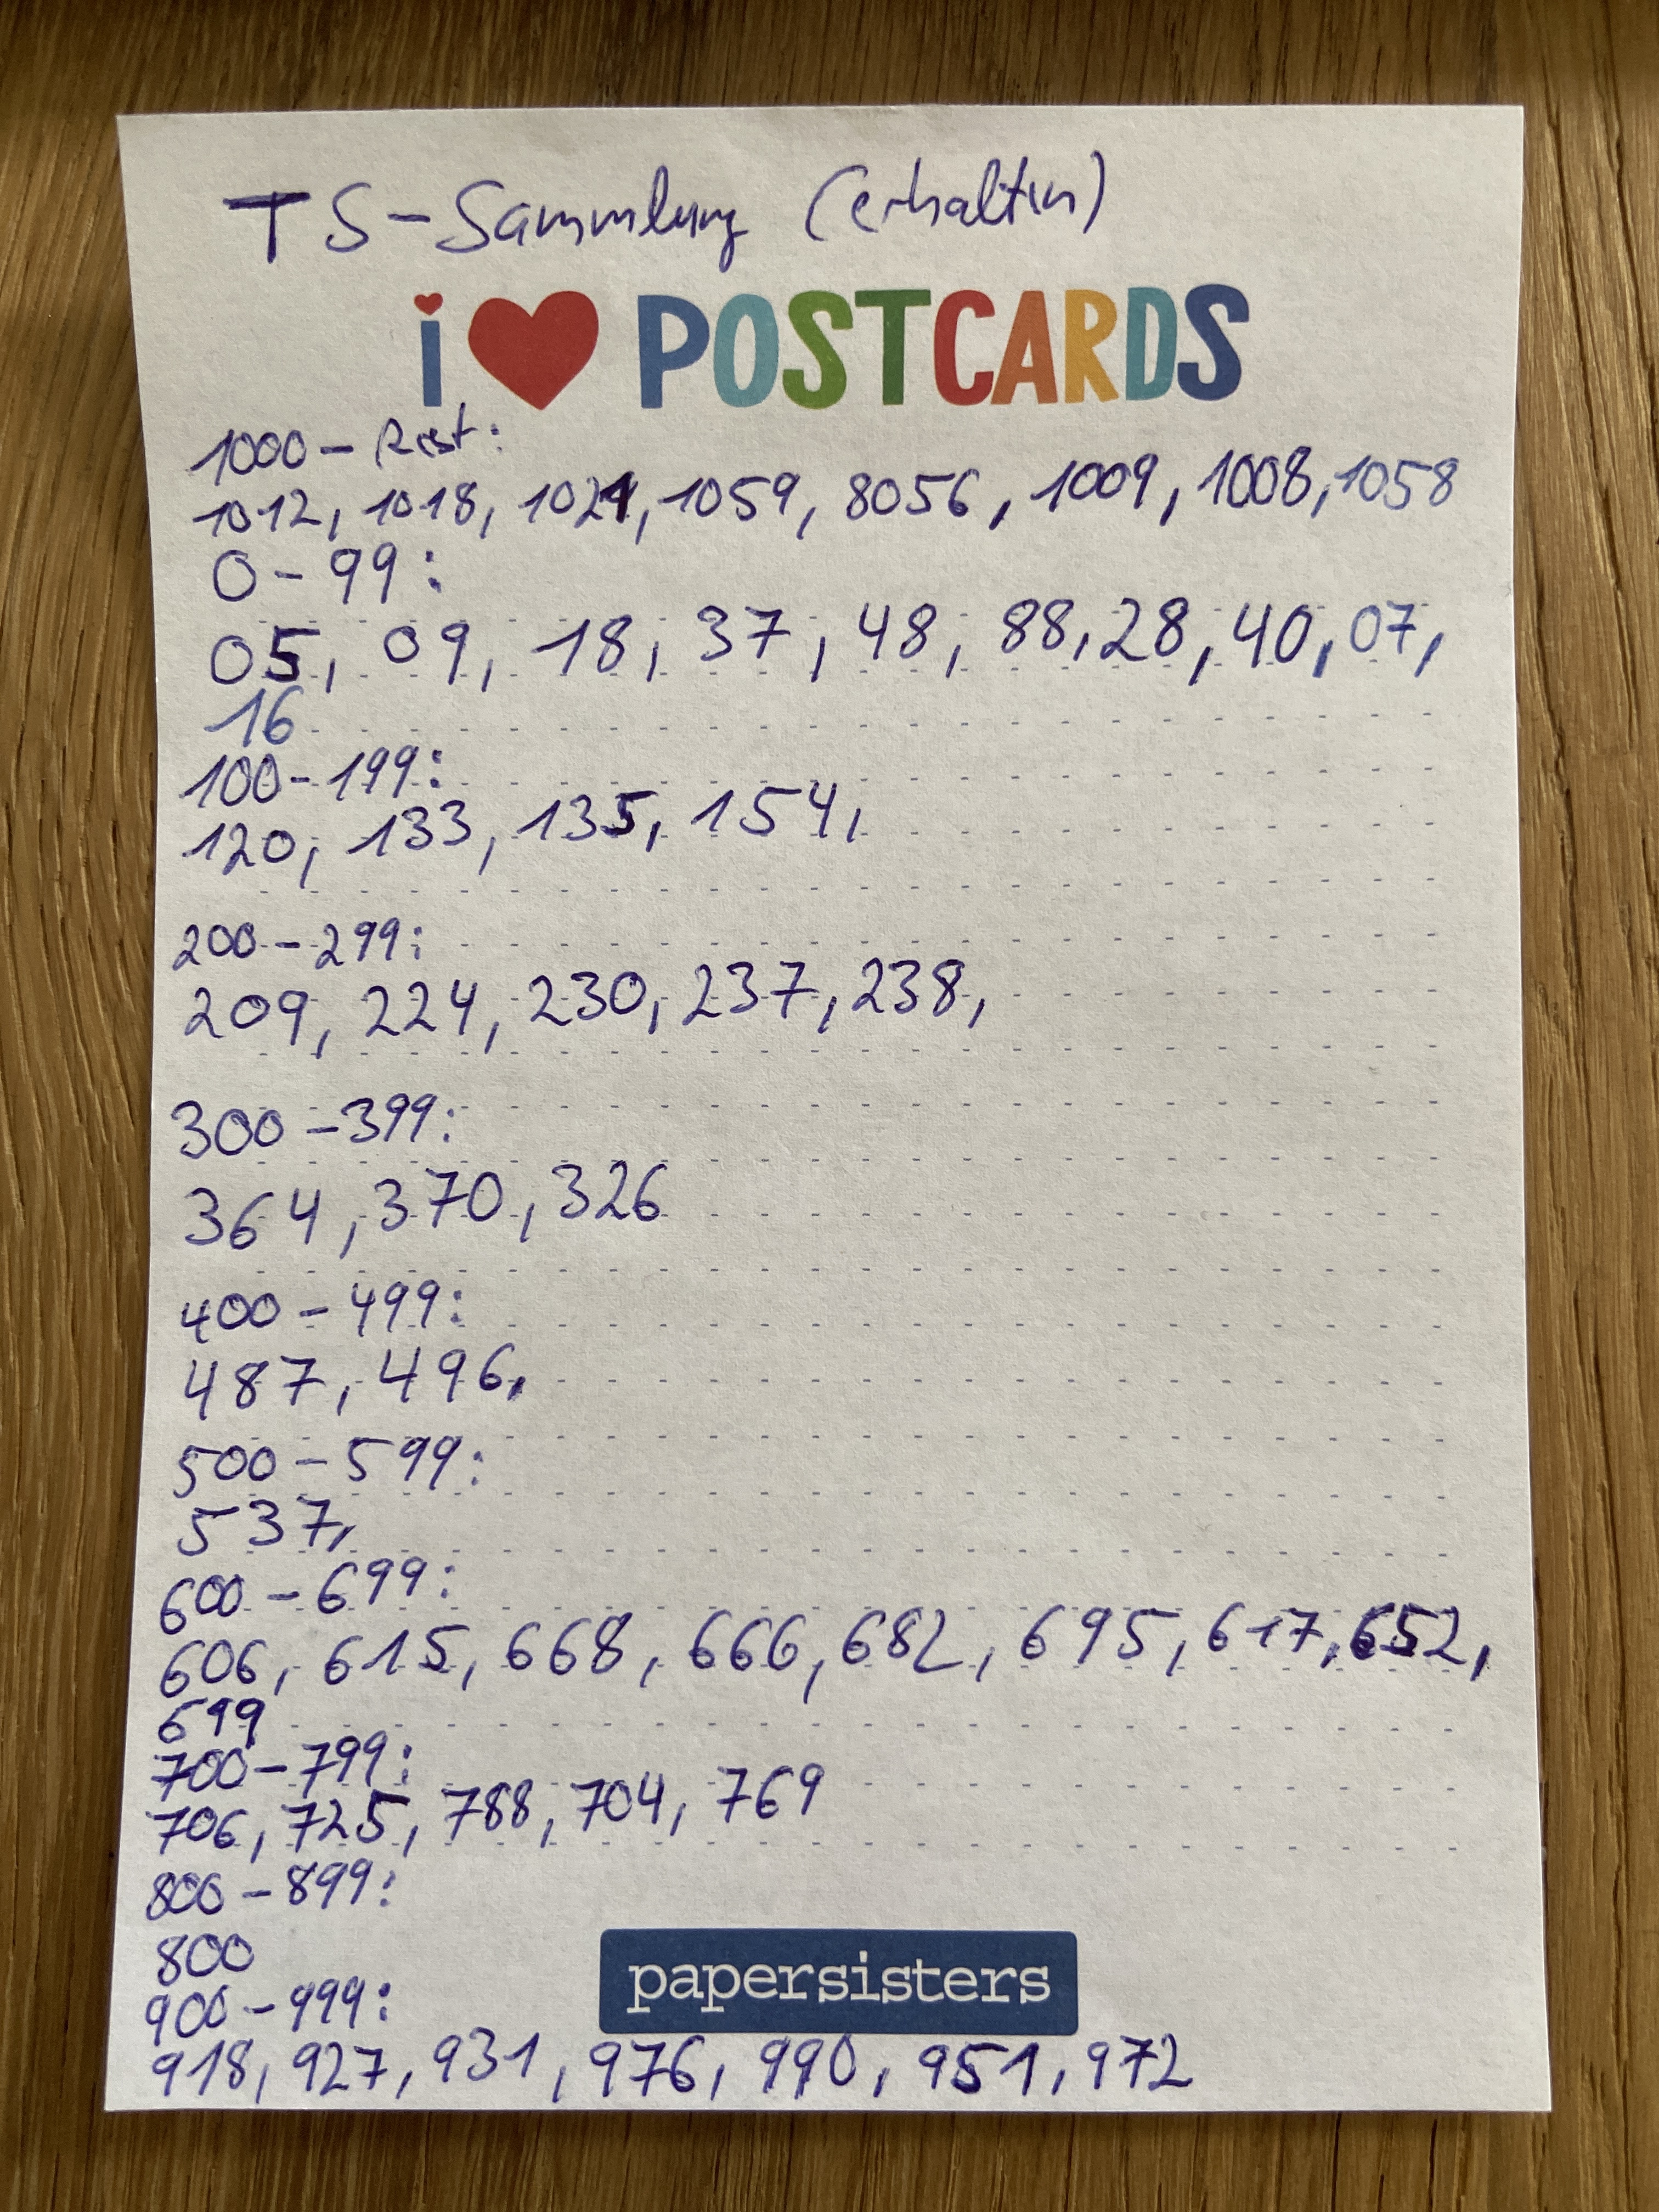 TS-Sammlung (erhalten)
i ♥ POSTCARDS
1000 - Rest:
1012, 1018, 1021, 1059, 8056, 1009, 1008, 1058
0 - 99:
05, 09, 18, 37, 48, 88, 28, 40, 07,
16
100 - 199:
120, 133, 135, 154,
200 - 299:
209, 224, 230, 237, 238,
300 - 399:
364, 370, 326
400 - 499:
487, 496,
500 - 599:
537,
600 - 699:
606, 615, 668, 666, 682, 695, 617, 652,
699
700 - 799:
706, 725, 788, 704, 769
800 - 899:
800
900 - 999:
918, 927, 931, 976, 990, 951, 972
papersisters